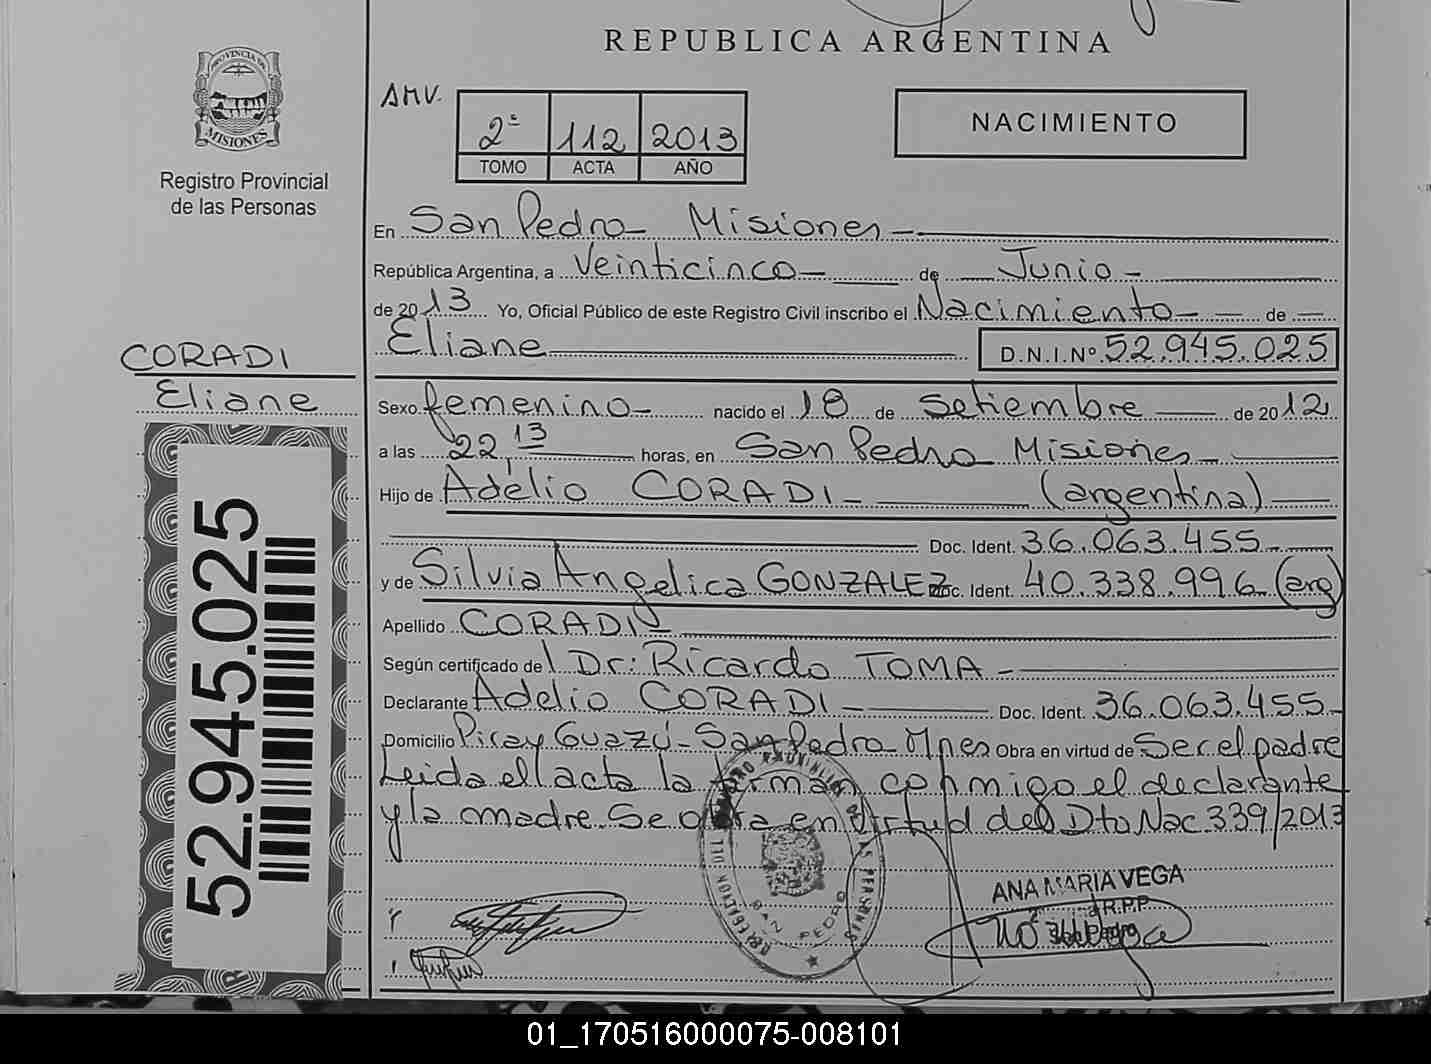 REPUBLICA ARGENTINA
PROVINCIA DE
MISIONES
Registro Provincial
de las Personas
AMV.
2º 112 2013
TOMO ACTA AÑO
NACIMIENTO
En San Pedro Misiones
República Argentina, a Veinticinco de Junio
de 2013 Yo, Oficial Público de este Registro Civil inscribo el Nacimiento de
Eliane D.N.I.Nº 52.945.025
CORADI
Eliane
Sexo femenino nacido el 18 de Setiembre de 2012
a las 22,13 horas, en San Pedro Misiones
Hijo de Adelio CORADI (argentina)
Doc. Ident. 36.063.455
y de Silvia Angelica GONZALEZ Doc. Ident. 40.338.996 (arg)
Apellido CORADI
Según certificado de Dr: Ricardo TOMA
Declarante Adelio CORADI Doc. Ident. 36.063.455
Domicilio Piray Guazú - San Pedro Mnes Obra en virtud de Ser el padre
Leida el acta la firman conmigo el declarante
y la madre. Se obra en Virtud del Dto Nac 339/2013
52.945.025
DELEGACION DEL REGISTRO PROVINCIAL DE LAS PERSONAS
SAN PEDRO
ANA MARIA VEGA
R.P.P.
01_170516000075-008101